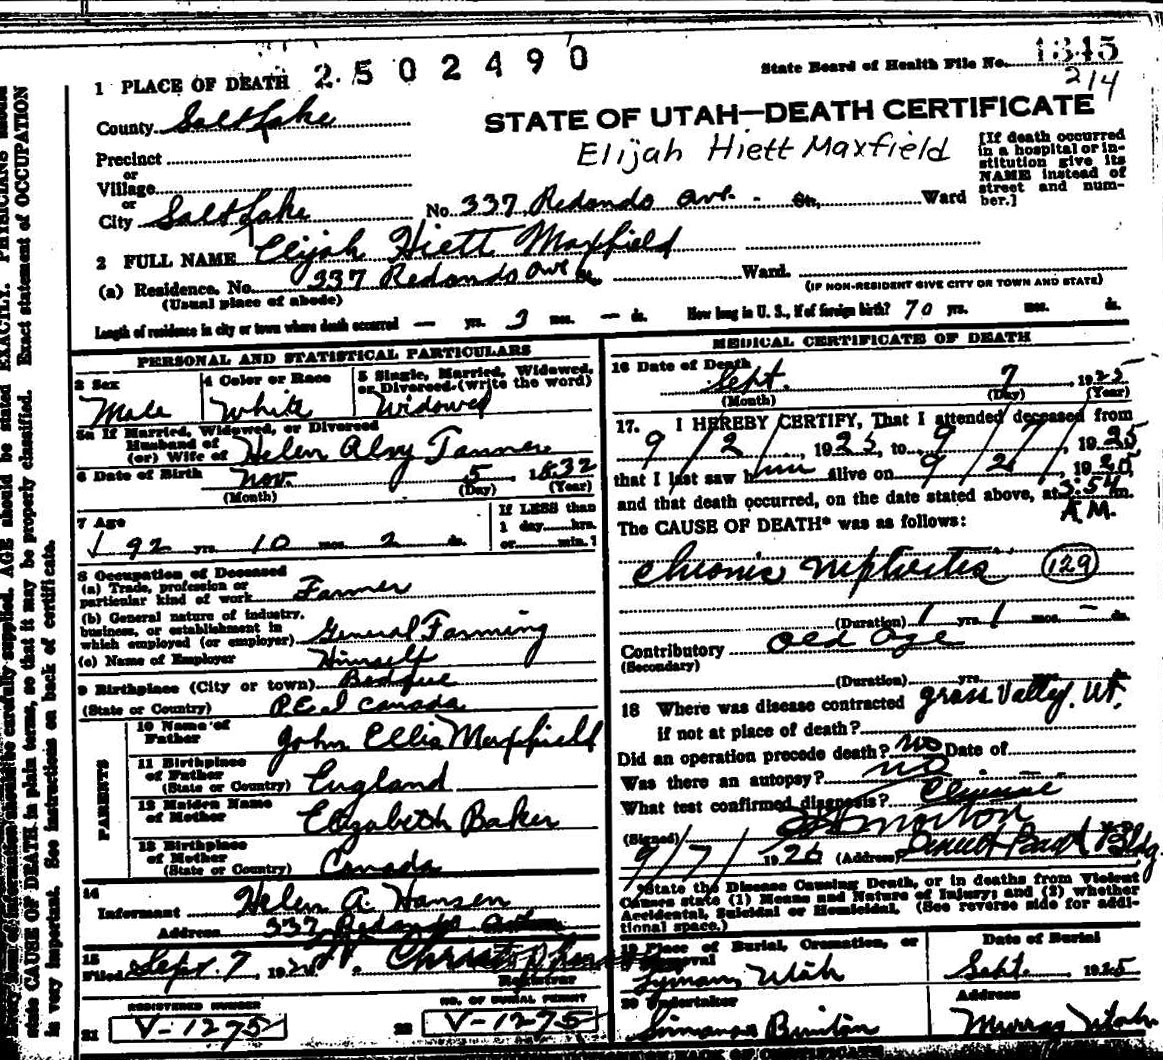 1 PLACE OF DEATH 2502490
State Board of Health File No. 1345
214
County Salt Lake
STATE OF UTAH—DEATH CERTIFICATE
Elijah Hiett Maxfield
[If death occurred in a hospital or institution give its NAME instead of street and number.]
Precinct
or
Village
or
City Salt Lake No 337 Redondo Ave. St, Ward
2 FULL NAME Elijah Hiett Maxfield
(a) Residence, No. 337 Redondo Ave St. Ward.
(Usual place of abode) (IF NON-RESIDENT GIVE CITY OR TOWN AND STATE)
Length of residence in city or town where death occurred — yrs. 3 mos. — ds. How long in U. S., if of foreign birth? 70 yrs. mos. ds.
PERSONAL AND STATISTICAL PARTICULARS
3 Sex 4 Color or Race 5 Single, Married, Widowed, or Divorced. (write the word)
Male White Widowed
5a If Married, Widowed, or Divorced
Husband of
(or) Wife of Helen Alvy Tanner
6 Date of Birth Nov. 5 1832
(Month) (Day) (Year)
7 Age If LESS than
1 day hrs.
92 yrs 10 mos. 2 ds. or min.?
8 Occupation of Deceased
(a) Trade, profession or
particular kind of work Farmer
(b) General nature of industry,
business, or establishment in
which employed (or employer) General Farming
(c) Name of Employer Himself
9 Birthplace (City or town)
(State or Country) P.E.I Canada
PARENTS
10 Name of
Father John Ellis Maxfield
11 Birthplace
of Father
(State or Country) England
12 Maiden Name
of Mother Elizabeth Baker
13 Birthplace
of Mother
(State or Country) Canada
14
Informant Helen A. Hansen
Address 337 Redondo
15
Filed Sept. 7, 192
Registrar
REGISTERED NUMBER NO. OF BURIAL PERMIT
21 V-1275 22 V-1275
MEDICAL CERTIFICATE OF DEATH
16 Date of Death Sept. 7 1925
(Month) (Day) (Year)
17. I HEREBY CERTIFY, That I attended deceased from
9/2/, 1925, to 9/7/, 1925
that I last saw him alive on 9/2/, 192
and that death occurred, on the date stated above, at 3:54 m.
A.M.
The CAUSE OF DEATH* was as follows:
Chronic Nephritis 129
(Duration) 1 yrs. 1 mos. — ds.
Contributory Old Age
(Secondary)
(Duration) yrs.
18 Where was disease contracted Grass Valley, Ut.
if not at place of death?
Did an operation precede death? no Date of
Was there an autopsy? no
What test confirmed diagnosis?
(Signed)
9/7/ 192 (Address) Bldg.
*State the Disease Causing Death, or in deaths from Violent
Causes state (1) Means and Nature of Injury; and (2) whether
Accidental, Suicidal or Homicidal. (See reverse side for additional space.)
19 Place of Burial, Cremation, or Removal Date of Burial
Lyman, Utah Sept. 1925
20 Undertaker Address
Murray Utah